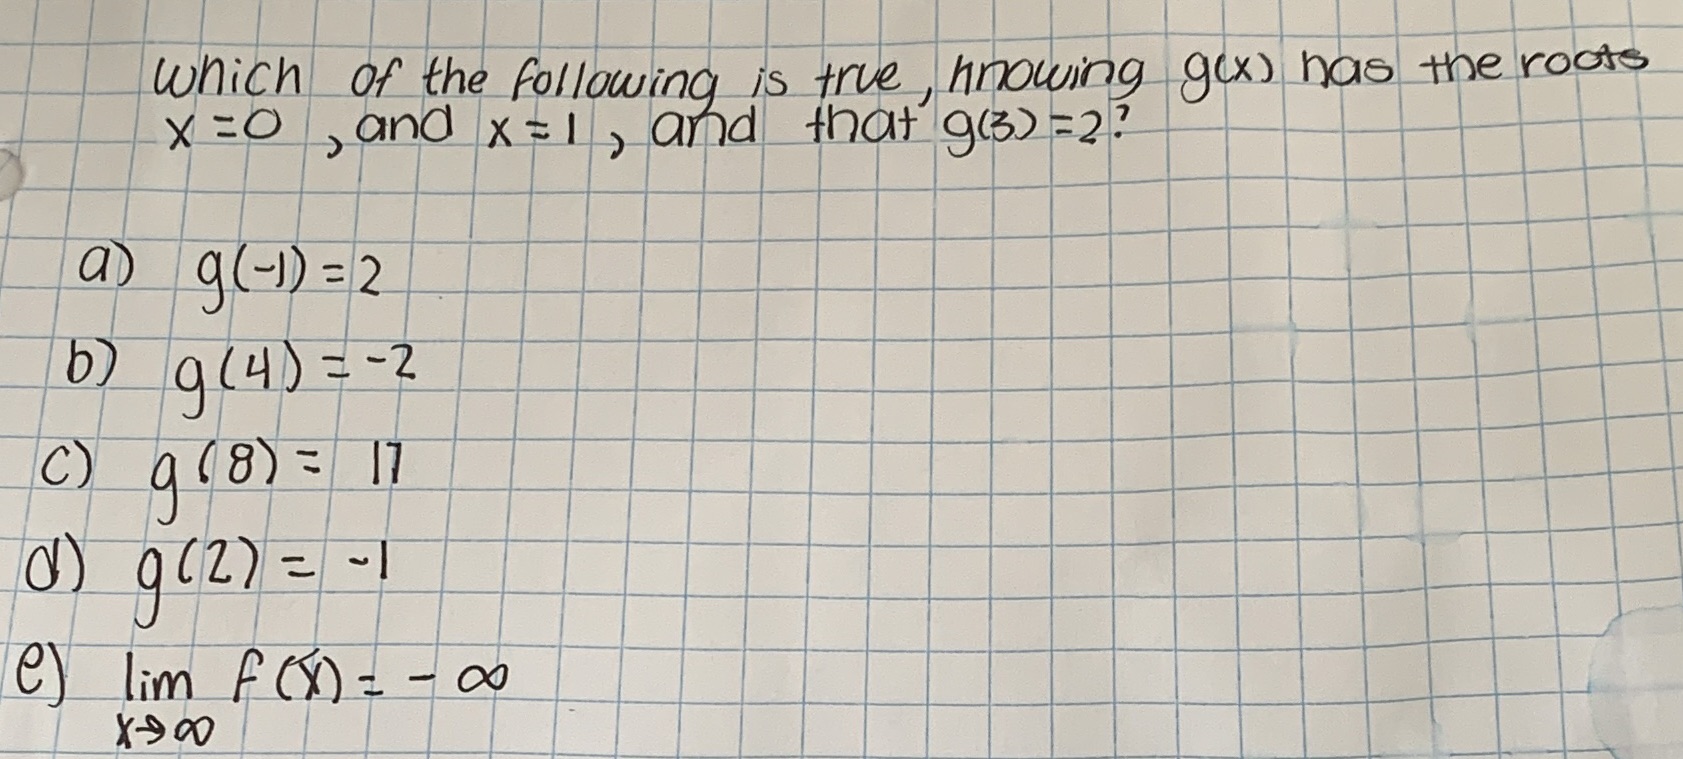 which of the following is true, knowing g(x) has the roots
x=0, and x=1, and that g(3)=2?
a) g(-1)=2
b) g(4)=-2
c) g(8)= 17
d) g(2)= -1
e) lim f(x)= -∞
x→∞